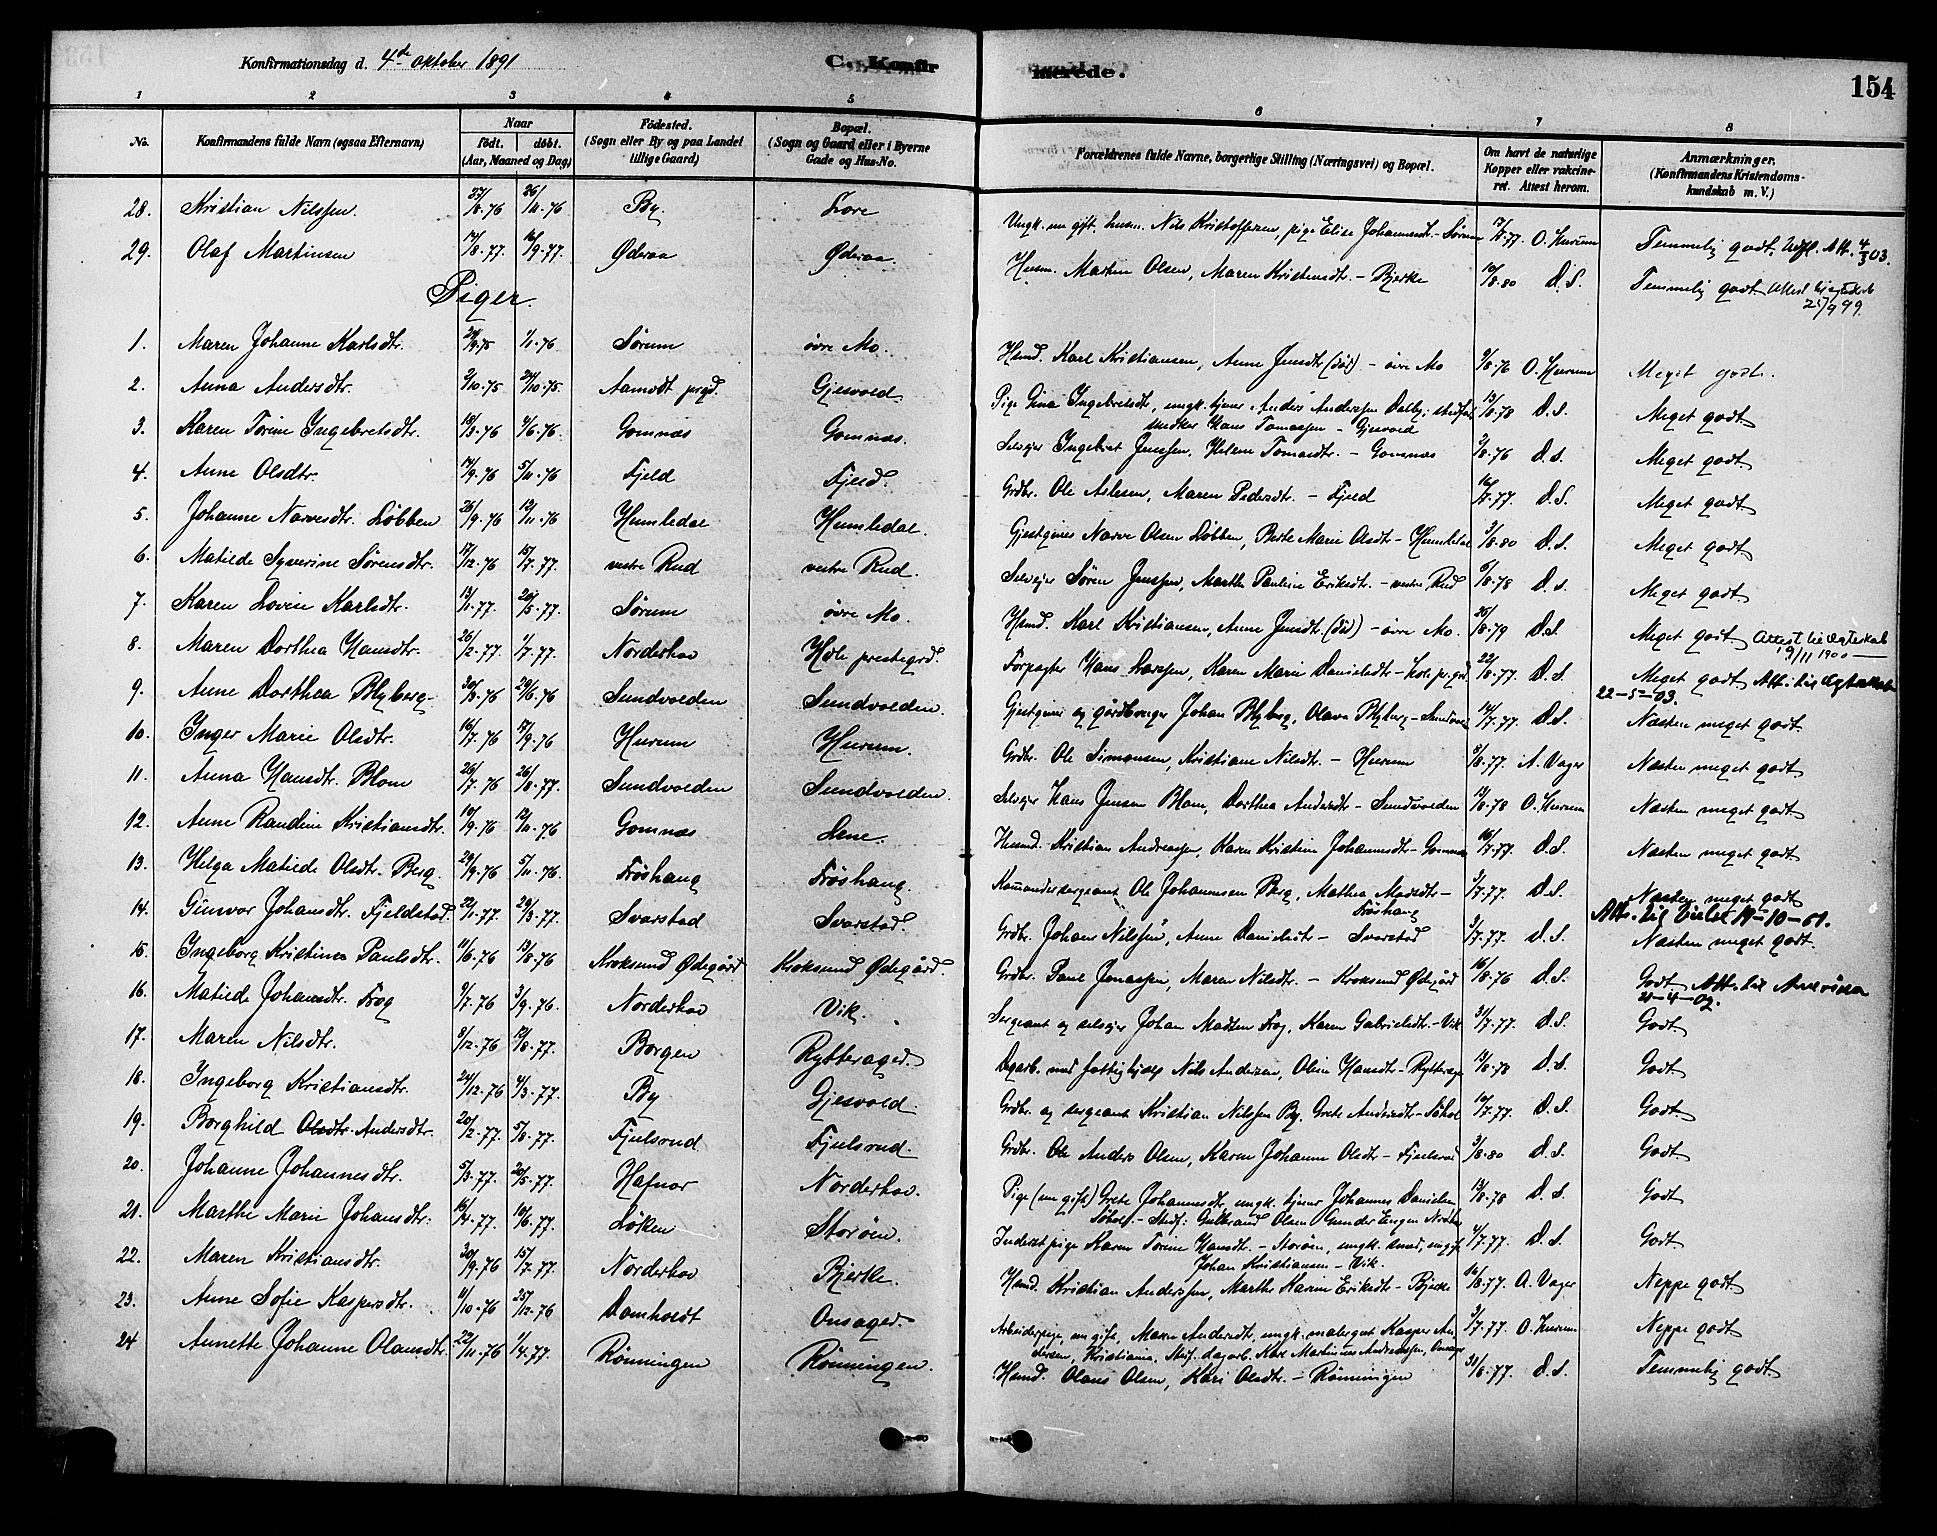 Konfirmationsdag d. 4de oktober 1891
C. Konfirmerede.
154
1 2 3 4 5 6 7 8
No. Konfirmandens fulde Navn (ogsaa Efternavn) Naar födt. döbt. (Aar, Maaned og Dag) Födested. (Sogn eller By og paa Landet tillige Gaard) Bopæl. (Sogn og Gaard eller i Byerne Gade og Hus-No. Forældrenes fulde Navne, borgerlige Stilling (Næringsvei) og Bopæl. Om havt de naturlige Kopper eller vakcineret. Attest herom. Anmærkninger. (Konfirmandens Kristendomskundskab m. V.)
28. Kristian Nilssen. 26/11.76 By. Lore Ungk. nu gift. husm. Nils Kristoffersen, pige Elise Johannesdt - Sørum O. Hurum Temmelig godt. Att. 4/3 03.
29. Olaf Martinsen 16/9.77 Øderaa Øderaa. Husm. Martin Olsen, Maren Kristensdt - Bjerke 10/8.80 D.S. Temmelig godt Attest 21/9 99.
Piger.
1. Maren Johanne Karlsdtr. 29/9.75 1/1.76 Sørum övre Mo. Hsmd. Karl Kristiansen, Anne Jensdt (död) - övre Mo 9/8.76 O. Hurum Meget godt.
2. Anna Andersdtr. 2/10.75 24/10.75 Aamodt prgd. Gjesvold Pige Gina Ingebretsdt, ungk. tjener Anders Anderssen Dalby; stedfar snedker Hans Tomassen - Gjesvold 13/8.78 D.S. Meget godt
3. Karen Torine Ingebretsdtr. 18/3.76 4/6.76. Gomnæs Gomnæs. Selvejer Ingebret Jenssen, Helene Tomasdt. - Gomnæs 2/8.76 D.S. Meget godt
4. Anne Olsdtr. 14/9.76 5/11.76 Fjeld Fjeld. Grdbr. Ole Aslesen, Maren Pedersdt - Fjeld 16/7.77 D.S. Meget godt
5. Johanne Narvesdtr. Løbben 26/9.76 12/11.76 Humledal Humledal. Gjestgiver Narve Olsen Løbben, Berte Marie Olsdt - Humledal 3/8.80 D.S. Meget godt
6. Matilde Syverine Sørensdtr. 17/12.76 15/7.77. vestre Rud vestre Rud. Selvejer Søren Jenssen, Marthe Pauline Eriksdt - vestre Rud 5/8.78 D.S. Meget godt
7. Karen Lovise Karlsdtr. 13/1.77. 20/5.77. Sørum övre Mo. Hsmd. Karl Kristiansen, Anne Jensdt (död) - övre Mo. 25/8.79 D.S. Meget godt Attest til Ægteskab 19/11 1900
8. Maren Dorthea Hansdtr. 26/2.77. 1/7.77. Norderhov Hole prestegrd. Forpagter Hans Larssen, Karen Marie Danielsdt - Hole pr.grd 22/8.77. D.S. Meget godt Att. til Ægteskab 22-5-03.
9. Anne Dorthea Blyberg 30/3.76 24/6.76 Sundvolden Sundvolden. Gjestgiver og gårdbruger Johan Blyberg, Olava Blyberg - Sundvol 14/7.77. D.S. Næsten meget godt.
10. Inger Marie Olsdtr. 16/7.76 17/9.76 Hurum Hurum. Grdbr. Ole Simonsen, Kristiane Nilsdt. - Hurum 5/8.77. A. Vager Næsten meget godt
11. Anna Hansdtr. Blom 26/7.76 26/8.77. Sundvolden Sundvolden. Selvejer Hans Jensen Blom, Dorthea Andersdt - Sundvolden 13/8.78 O. Hurum Næsten meget godt
12. Anne Randine Kristiansdtr. 10/9.76 12/11.76 Gomnæs Lene. Husmd. Kristian Andreassen, Karen Kristine Johannesdt - Gomnæs 16/7.77. D.S. Næsten meget godt
13. Helga Matilde Olsdtr. Berg. 24/9.76 5/11.76. Frøshaug Frøshaug. Kommandersergeant Ole Johannesen Berg, Mathea Madsdt - Frøshaug 3/7.77. D.S. Næsten meget godt Att. til Vielse 19-10-01.
14. Gunvor Johansdtr. Fjeldstad. 22/1.77 29/3.77 Svarstad Svarstad. Grdbr. Johan Nilssen, Anne Danielsdt - Svarstad 3/7.77. D.S. Næsten meget godt.
15. Ingeborg Kristine Paulsdtr. 11/6.76 13/8.76 Kroksund Ødegård Kroksund Ødegård. Grdbr. Paul Jonassen, Maren Nilsdt - Kroksund Ødegård 16/8.76 D.S. Godt Att. til 21-4-02.
16. Matilde Johansdtr. Frog 9/7.76 3/9.76. Norderhov Vik. Sergeant og selvejer Johan Madsen Frog, Karen Gabrielsdt - Vik 31/7.77. D.S. Godt
17. Maren Nilsdtr. 8/12.76 12/8.77. Borgen Rytteraged. Dgarb. med fattighjælp Nils Andersen, Oline Hansdt - Rytterager 13/8.78 D.S. Godt
18. Ingeborg Kristiansdtr. 24/12.76 4/3.77. By Gjesvold Grdbr. og sergeant Kristian Nilssen By. Grete Andersdt - Søhol 10/7.77. D.S. Godt
19. Borghild Olsdtr. Andersdtr. 20/2.77. 5/8.77. Fjulsrud Fjulsrud. Grdbr. Ole Anders Olsen, Karen Johanne Olsdt - Fjulsrud 3/8.80 D.S. Godt
20. Johanne Johannesdtr. 5/3.77. 20/5.77. Hafnor Norderhov. Pige (nu gift) Grete Johannesdt, ungk. tjener Johannes Danielsen Søhol - Stef: Gulbrand Olsen 13/8.78 D.S. Godt
21. Marthe Marie Johansdtr. 16/4.77. 10/6.77. Løken Storøen. Inderst pige Karen Torine Hansdt. - Storøen, ungk. smed, ugift Johan Kristiansen - Vik. 4/7.77. D.S. Godt
22. Maren Kristiansdtr. 30/9.76 15/7.77. Norderhov Bjerke. Hsmd. Kristian Anderssen, Marthe Karine Eriksdt - Bjerke 16/8.77. A. Vager Neppe godt
23. Anne Sofie Kaspersdtr. 11/10.76 25/12.76 Domholdt Onsaged. Arbeiderpige, nu gift, Maren Andersdt, ungk. malergut Kasper Andersen, Kristiania, Stif. dagarb. Karl Martinius Andreassen, Onsager 3/7.77. O. Hurum Neppe godt
24 Annette Johanne Olansdtr. 22/11.76 1/4.77. Rönningen Rönningen. Hsmd. Olaus Olsen, Kari Olsdtr. - Rönningen 31/8.77. D.S. Temmelig godt.